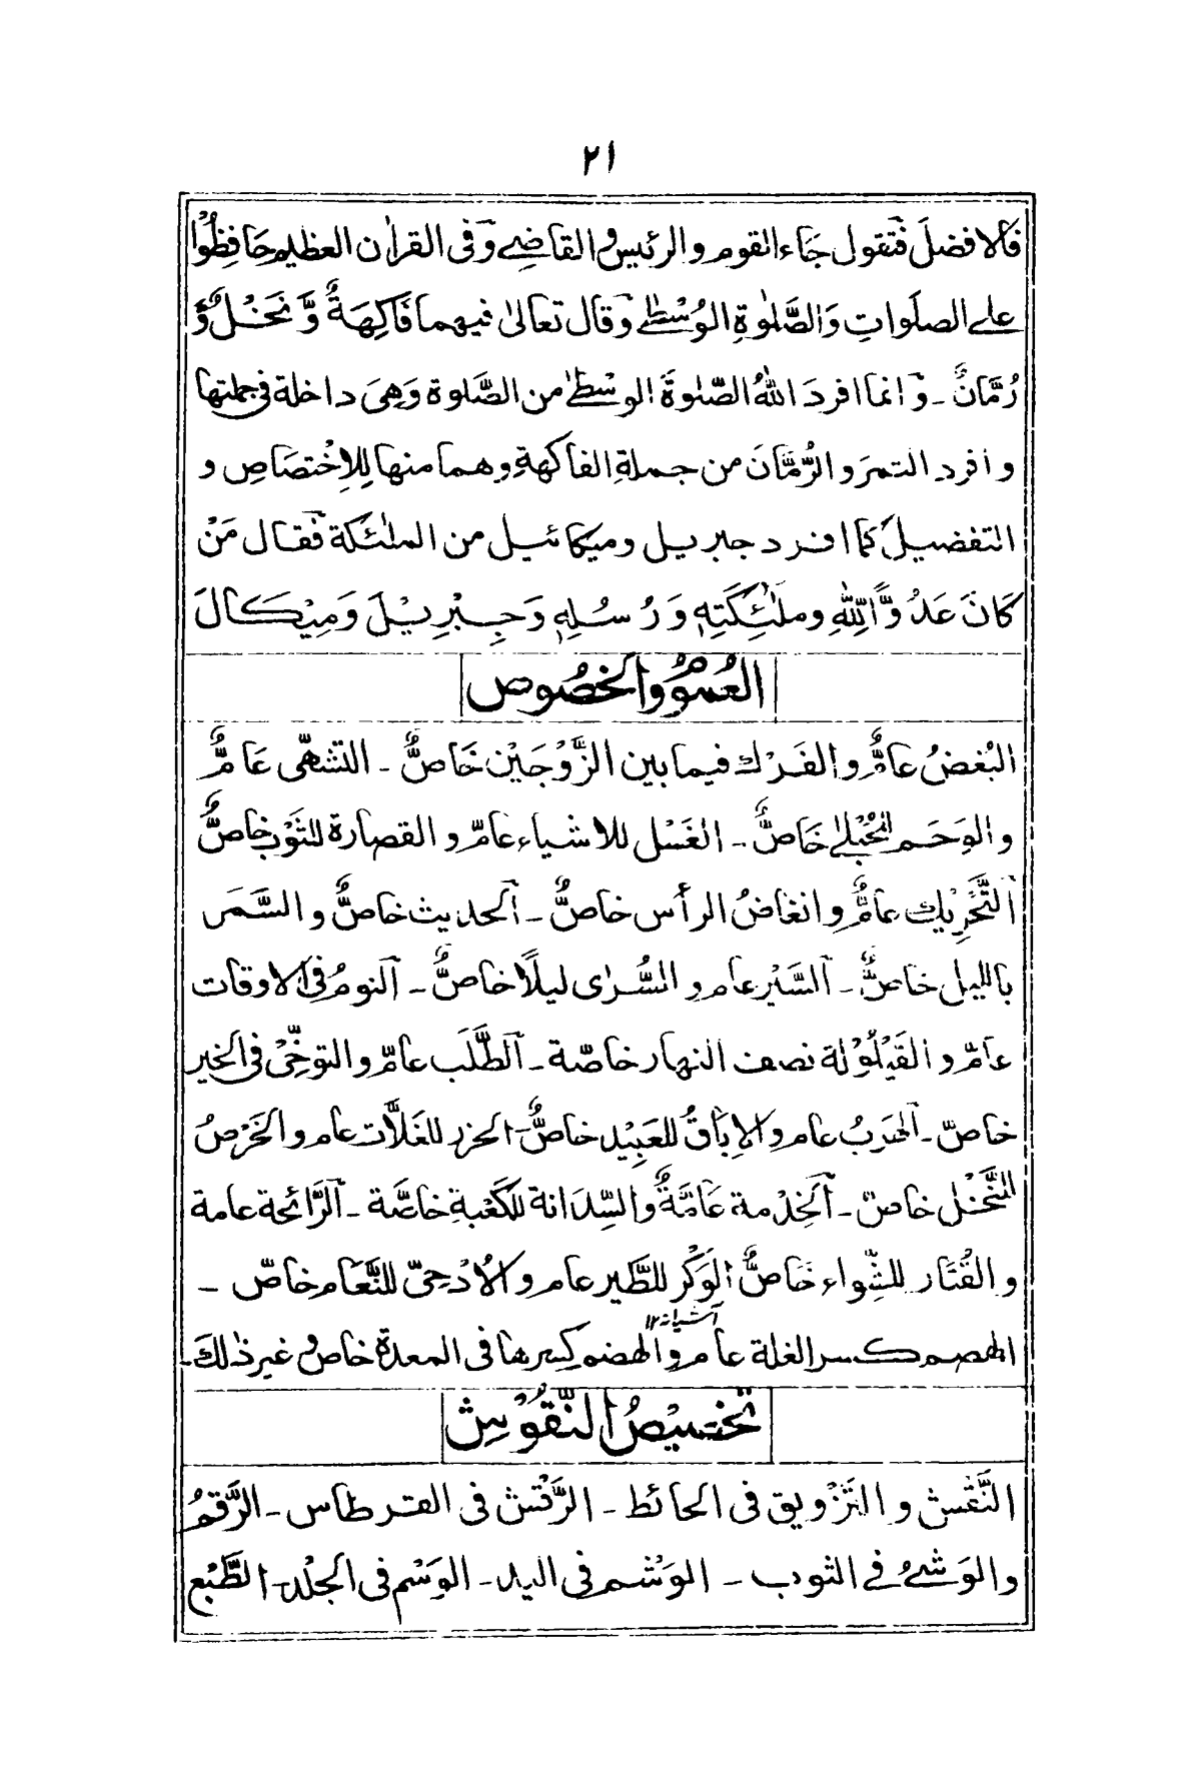 ٢١
فالافضلَ فتقول جَاءالقوم والرئيس و القاضِے وَفى القراٰن العظيم حَافِظُوْا
على الصلَواتِ وَالصَّلٰوةِ الوُسْطٰے وَقال تعالىٰ فيهما فَاكِهَةٌ وَّ نَخْلٌ وَّ
رُمَّانٌ ـ وَانما افردَ اللهُ الصّلٰوةَ الوسْطٰے من الصَّلوة وَهِىَ داخلة فى جملتها
و افرد التمرَ و الرُّمَّانَ من جملةِ الفاكهةِ وهما منها لِلاِخْتصَاصِ و
التفضيلَ كما افرد جبريل وميكائيل من الملٰئكة فَقال مَنْ
كَانَ عَدُوًّا لِّلّٰهِ وملٰٓئِكَتِهٖ وَ رُسُلِهٖ وَجِبْرِيْلَ وَمِيْكَالَ
العُمُوْمُ والخصُوص
البُغضُ عامٌّ و الفَرْك فيما بين الزَّوْجَيْن خَاصٌّ ـ التشهّى عَامٌّ
والوَحَم للحُبْلىٰ خَاصٌّ ـ الغَسْل للاشياء عامّ و القصارة للثَوْب خاصٌّ
اَلتَّحْرِيْك عامٌّ و انغاضُ الرأس خاصٌّ ـ اَلحديث خاصٌّ و السَّمَر
بالليل خاصٌّ ـ اَلسَّيْر عام و السُّرٰى ليلًا خاصٌّ ـ اَلنومُ فى الاوقات
عامّ و القَيْلُوْلة نصف النهار خاصّة ـ اَلطَّلَب عامّ و التوخّىْ فى الخير
خاصّ ـ اَلهَرَبُ عام و الاِبَاقُ للعَبِيْد خاصٌّ ـ الحزر للغَلَّات عام و الخَرْصُ
للنَّخْل خاصّ ـ اَلخِدْمة عَامَّةٌ والسِّدَانة للكَعْبةِ خاصَّة ـ اَلرَّائحة عامة
و القُتَار للشِّواء خَاصٌّ الوَكْر للطَّير عام و الاُدْحِىّ للنَّعَام خاصّ ـ
آشيانه ١٢
الهصم كسر الغلة عام والهضم كسرها فى المعدة خاص و غير ذٰلك ـ
تخصِيْصُ النّقُوْشِ
النَّقْش و التَزْويق فى الحائط ـ الرَّقْش فى القرطاس ـ الرَّقمُ
والوَشىُ فے الثوب ـ الوَشم فى اليد ـ الوَسْم فى الجلْد ـ الطَّبْع